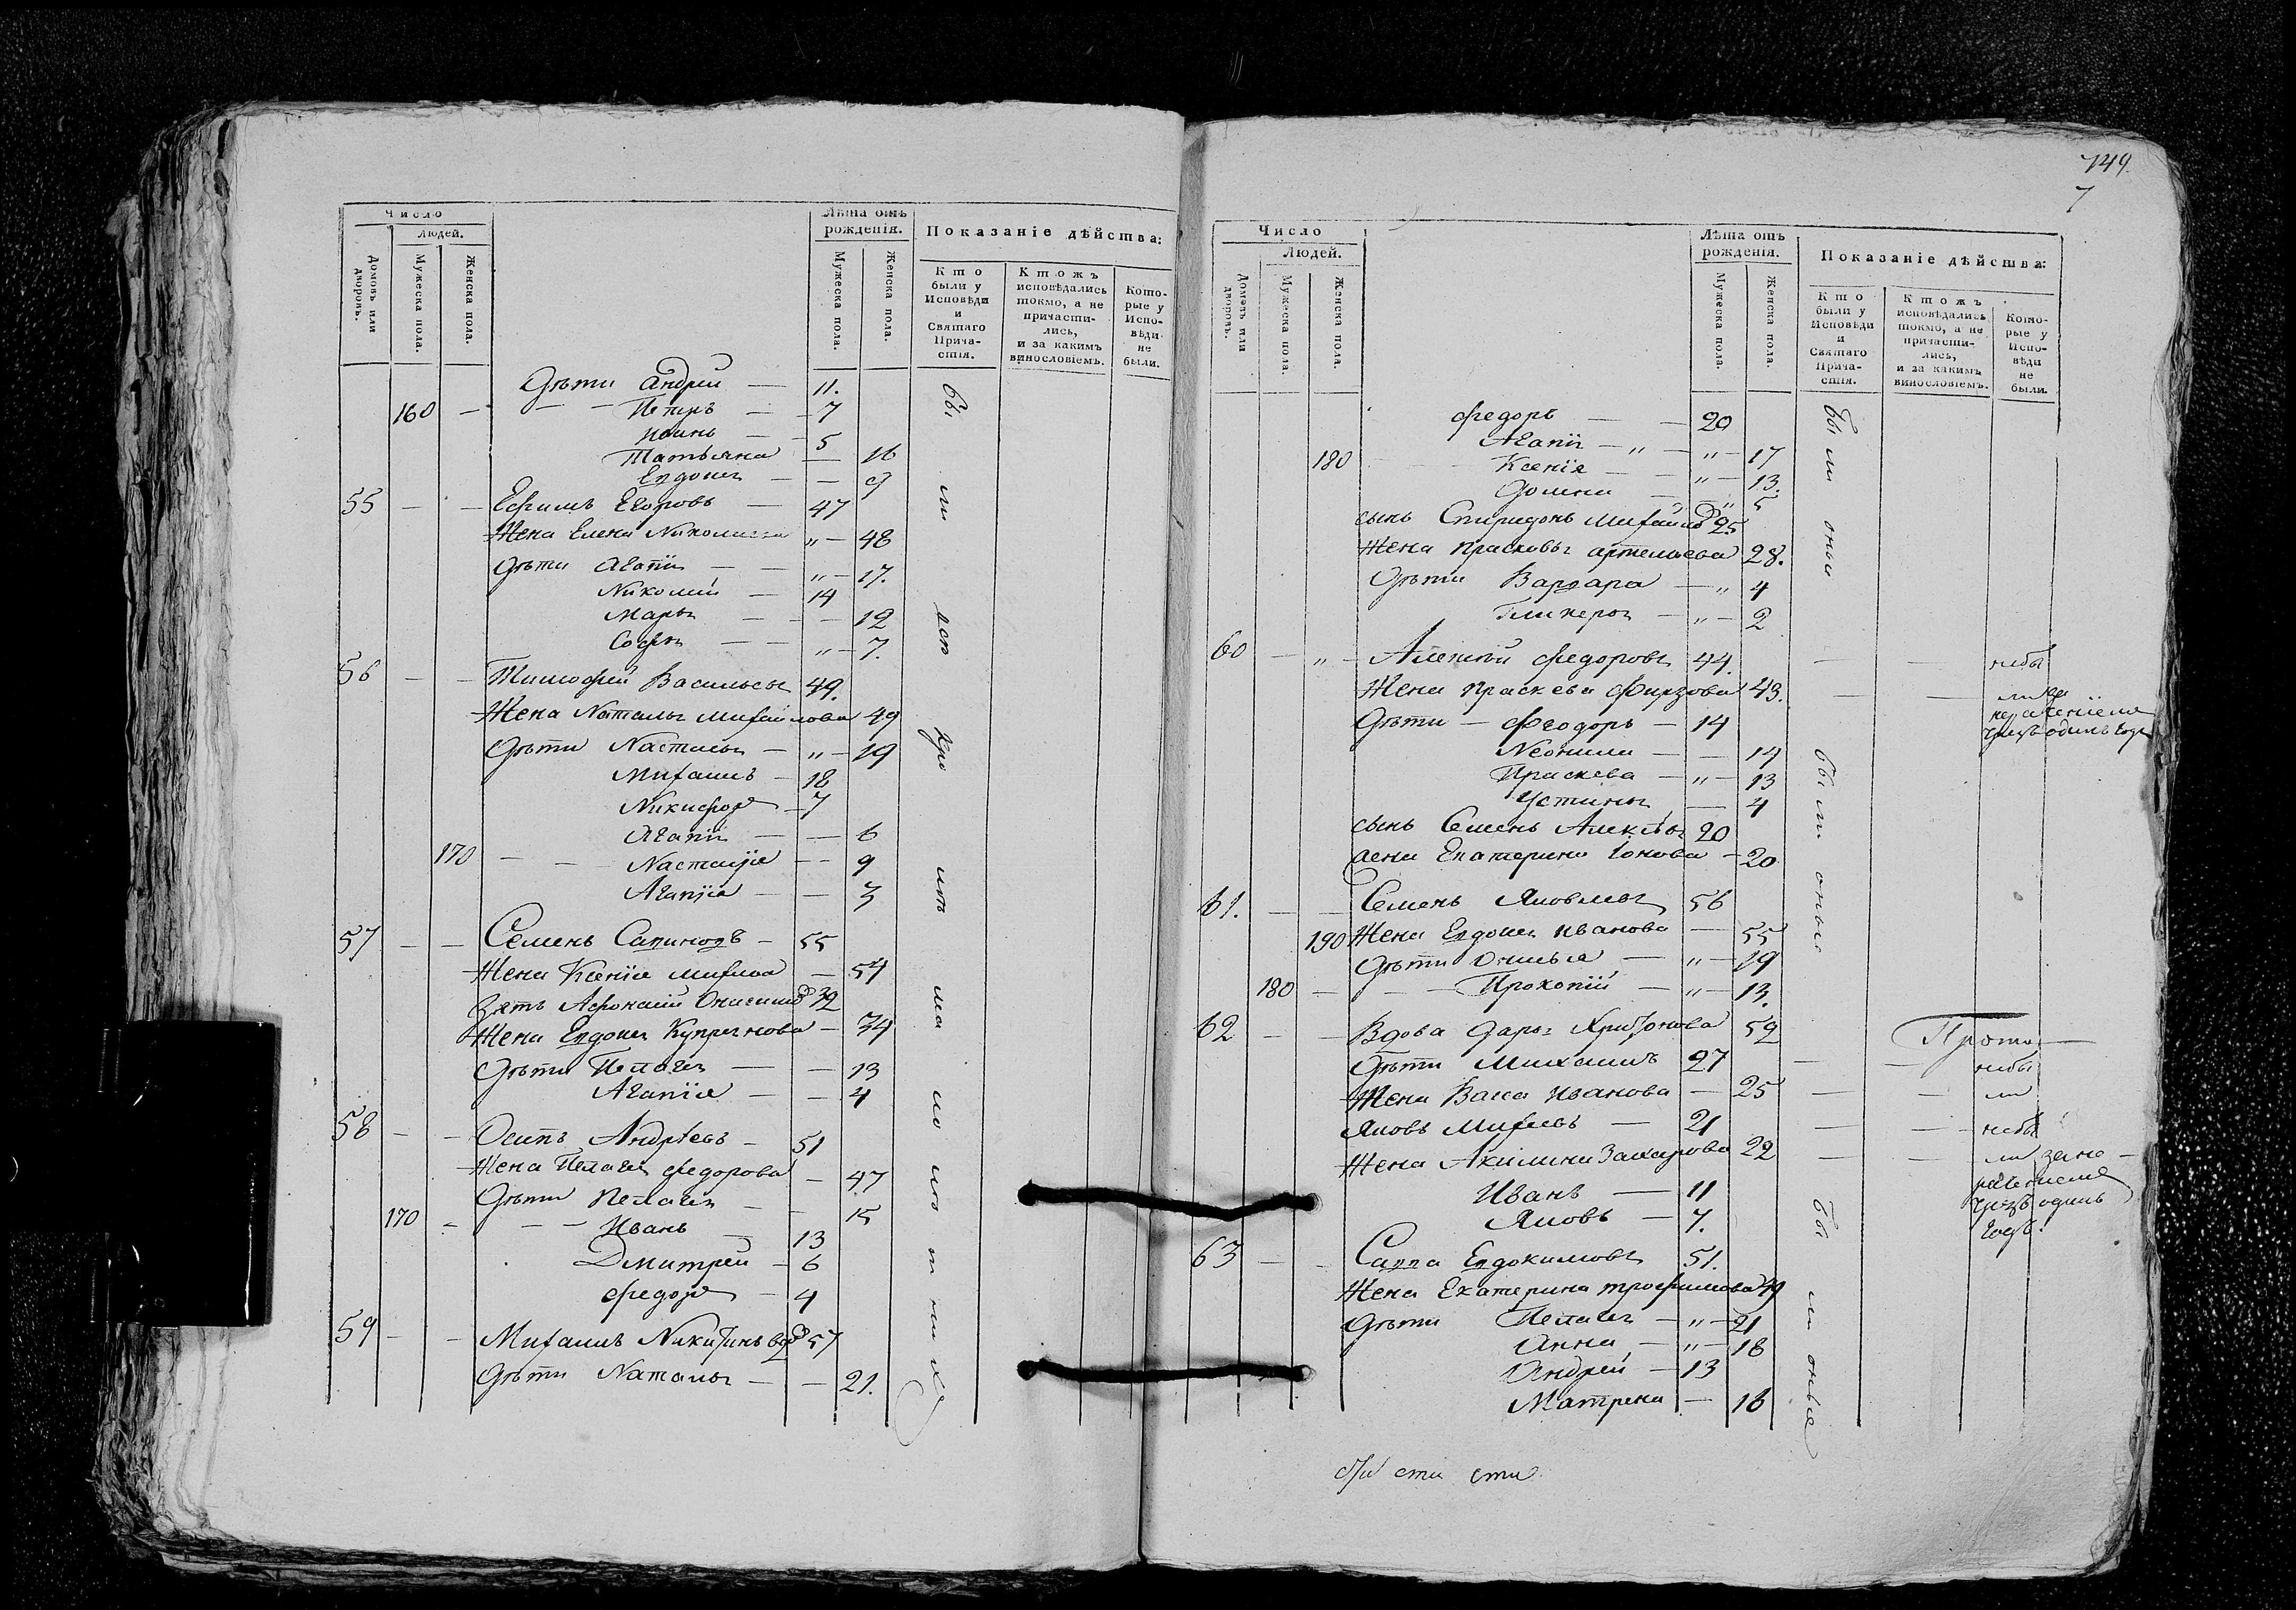 Число
Людей.
Домовъ или дворовъ.
Мужеска пола.
Женска пола.
Лѣта отъ рожденія.
Мужеска пола.
Женска пола.
Показаніе дѣйства:
Кто были у Исповѣди и Святаго Причастія.
Ктожъ исповѣдались токмо, а не причастились, и за какимъ винословіемъ.
Которые у Исповѣди не были.
Дѣти Андрей — 11.
160 — Петръ — 7
Иванъ — 5
Татьяна — 16
Евдокія — 9
55 — — Ефимъ Егоровъ — 47
Жена Елена Николаева " — 48
Дѣти Агапія — " — 17.
Николай — 14
Марья — — 12
Софья — " — 7.
56 — — Тимофей Васильевъ 49.
Жена Наталья Михайлова 49
Дѣти Настасья — " — 19
Михаилъ — 18
Никифоръ — 7
Агапія — — 6
170 — — Настасія — — 9
Агапія — — 3
57 — — Семенъ — 55
Жена Ксенія — 54
Зять Афонасій Онисимовъ 32
Жена Евдокія Купріянова — 34
Дѣти Пелагея — — 13
Агапія — — 4
58 — — Осипъ Андрѣевъ — 51
Жена Пелагея Федорова — 47
Дѣти Пелагея — — 15
170 — — Иванъ — 13
Дмитрей — 6
Федоръ — 4
59 — — Михаилъ Никитинъ вдовъ 57
Дѣти Наталья — — 21.
бы ли
749.
7
Число
Людей.
Домовъ или дворовъ.
Мужеска пола.
Женска пола.
Лѣта отъ рожденія.
Мужеска пола.
Женска пола.
Показаніе дѣйства:
Кто были у Исповѣди и Святаго Причастія.
Ктожъ исповѣдались токмо, а не причастились, и за какимъ винословіемъ.
Которые у Исповѣди не были.
Федоръ — — 20
Агапія — " — " — 17
180 Ксенія — — " — 13.
Домна — " 5
сынъ Спиридонъ Михаиловъ 25
Жена Прасковья Артемьева 28.
Дѣти Варвара — " 4
Гликерья — " — 2
были оные
60 — " — Алексѣй Федоровъ 44. — — небы
Жена Праскева 43. — — ли за
Дѣти — Феодоръ — 14 нераченіемъ
Неонила — — 14 чрезъ одинъ годъ
Праскева — " — 13
Устинья — 4
сынъ Семенъ Алексѣевъ 20
жена Екатерина Іонова — 20
61. — — Семенъ Яковлевъ 56
190 Жена Евдокія Иванова — 55
Дѣти — " — 19
180 — — Прокопій — " — 13.
были оные
62 — — Вдова Дарья Харитонова 59
Дѣти Михаилъ 27 — — небы
Жена Васса Иванова — 25 — — ли
Яковъ — 21 — — небы
Жена Акилина Захарова 22 — — ли за не-
Иванъ — 11 раченіемъ
Яковъ — 7. чрезъ одинъ
годъ.
63 — — Савва Евдокимовъ 51.
Жена Екатерина Трофимова 49
Дѣти Пелагея — " — 21
Анна — " — 18
Андрей — 13
Матрена — 16
были оные